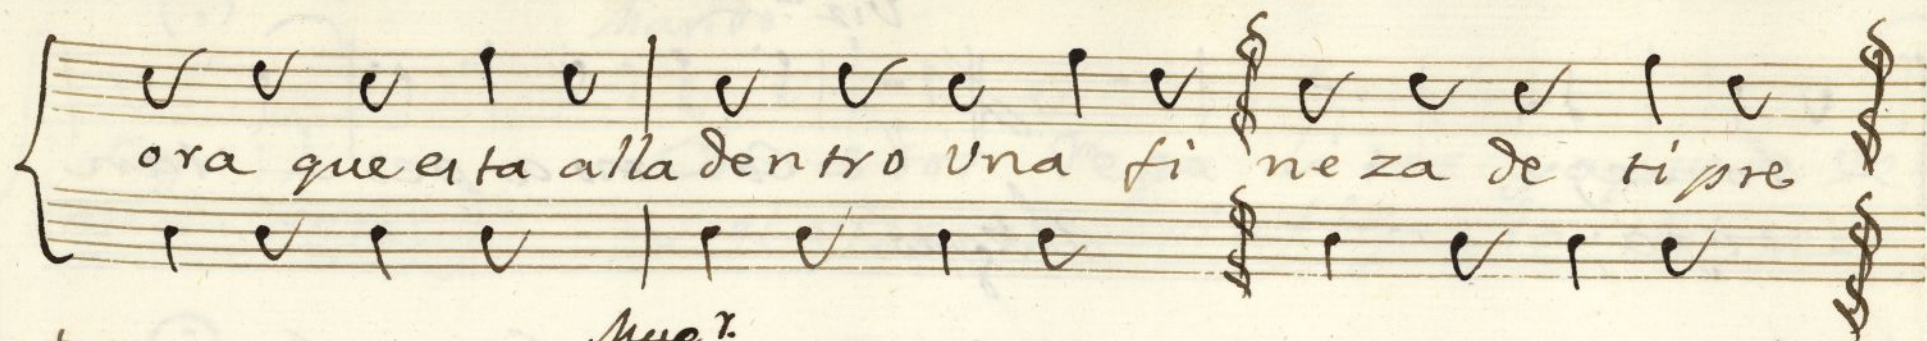 ora que esta alla dentro una fi ne za de ti pre
Mug.r